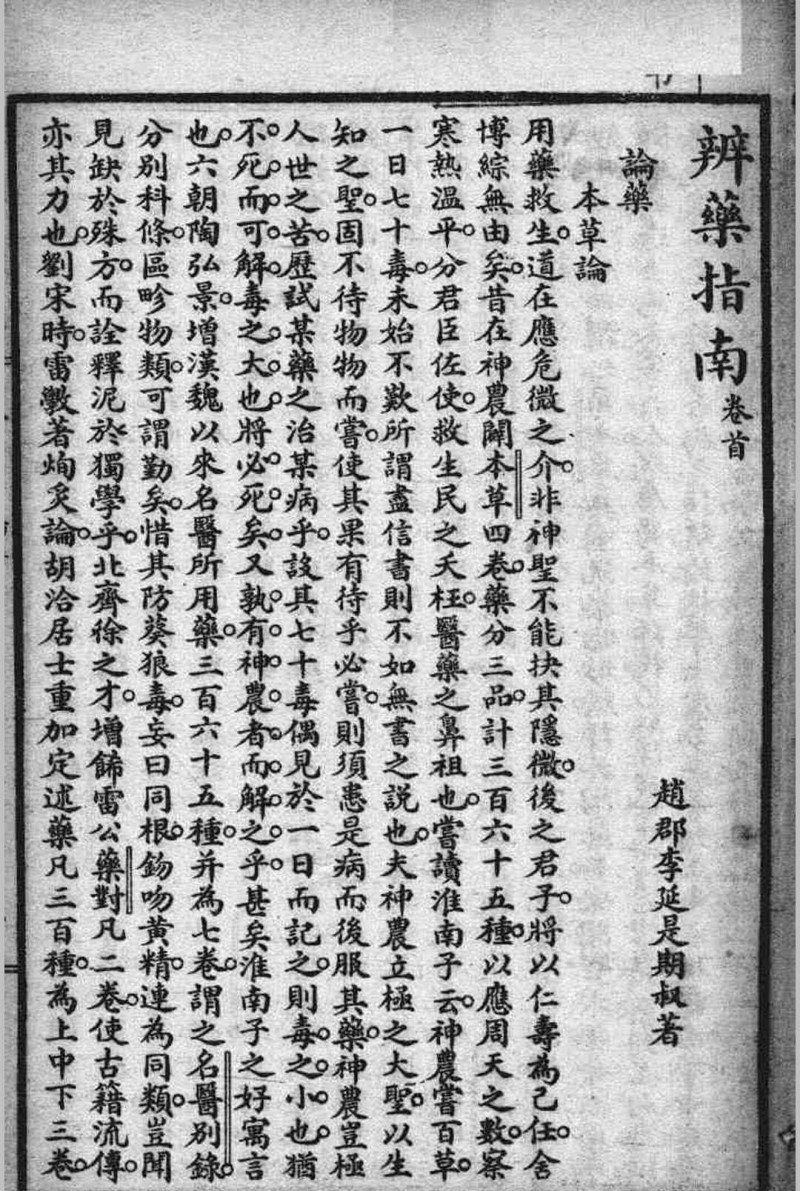 辨藥指南卷首
趙郡李延是期叔著
論藥
本草論
用藥救生。道在應危微之介。非神聖不能抉其隱微。後之君子。將以仁壽為己任。舍
博綜無由矣。昔在神農闢本草四卷。藥分三品。計三百六十五種。以應周天之數。察
寒熱溫平。分君臣佐使。救生民之夭枉。醫藥之鼻祖也。嘗讀淮南子云。神農嘗百草。
一日七十毒。未始不歎所謂盡信書則不如無書之説也。夫神農立極之大聖。以生
知之聖。固不待物物而嘗。使其果有待乎必嘗。則須患是病而後服其藥。神農豈極
人世之苦。歷試某藥之治某病乎。設其七十毒偶見於一日而記之。則毒之小也。猶
不死而可解。毒之大也。將必死矣。又孰有神農者而解之乎。甚矣淮南子之好寓言
也。六朝陶弘景。增漢魏以來名醫所用藥。三百六十五種。并為七卷。謂之名醫別錄。
分別科條。區畛物類。可謂勤矣。惜其防葵狼毒。妄曰同根。鈎吻黃精。連為同類。豈聞
見缺於殊方。而詮釋泥於獨學乎。北齊徐之才。增飾雷公藥對凡二卷。使古籍流傳。
亦其力也。劉宋時。雷斆著炮炙論。胡洽居士重加定述。藥凡三百種。為上中下三卷。